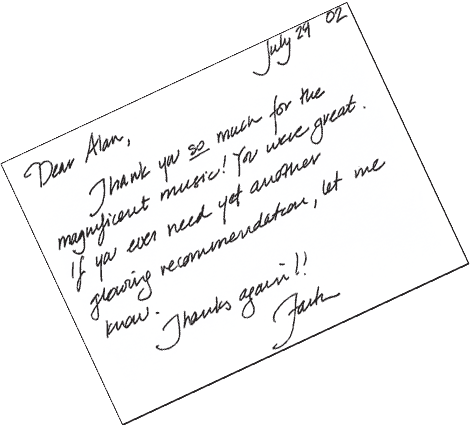 July 29 02
Dear Alan,
Thank you so much for the
magnificent music! You were great.
If you ever need yet another
glowing recommendation, let me
know.
Thanks again!!